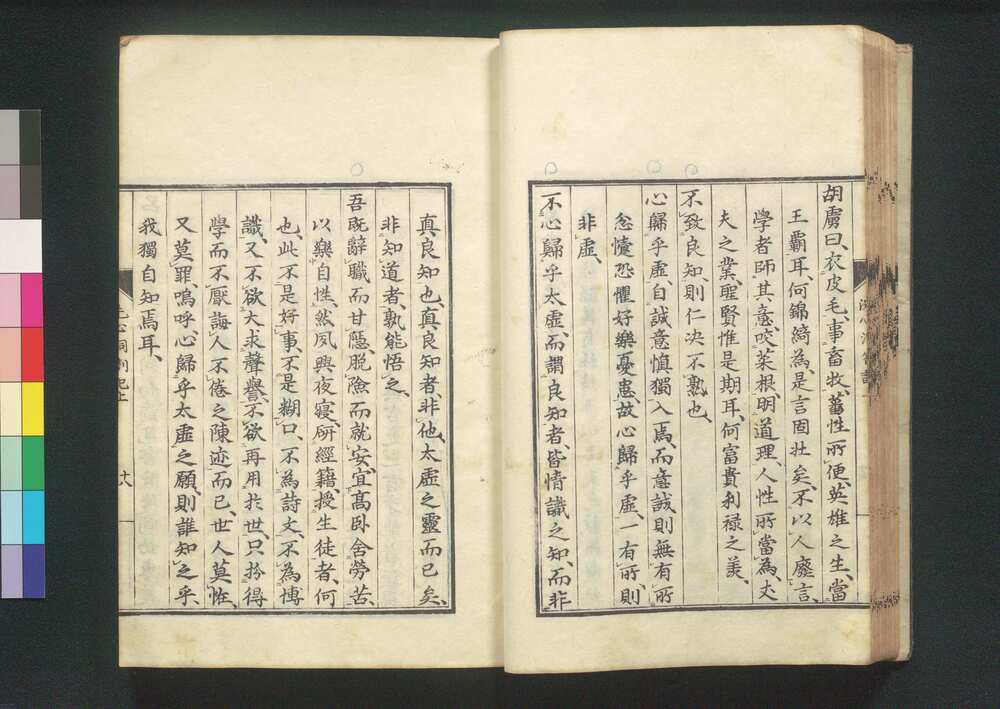 胡虜曰、衣皮毛、事畜牧、蕃性所便、英雄之生、當
王霸耳、何錦綺為、是言固壯矣、不以人廢言、
學者師其意、咬菜根、明道理、人性所當為、丈
夫之業、聖賢惟是期耳、何富貴利祿之羨、
不致良知、則仁決不熟也、
心歸乎虛、自誠意慎獨入焉、而意誠則無有所
忿懥恐懼好樂憂患、故心歸乎虛、一有所則
非虛、
不心歸乎太虛、而謂良知者、皆情識之知、而非
真良知也、真良知者、非他、太虛之靈而已矣、
非知道者、孰能悟之、
吾既辭職而甘隱、脫險而就安、宜高臥舍勞苦、
以樂自性、然夙興夜寢、研經籍、授生徒者、何
也、此不是好事、不是糊口、不為詩文、不為博
識、又不欲大求聲譽、不欲再用於世、只扮得
學而不厭、誨人不倦之陳迹而已、世人莫怪、
又莫罪、嗚呼、心歸乎太虛之願、則誰知之乎、
我獨自知焉耳、
心洞劄記上